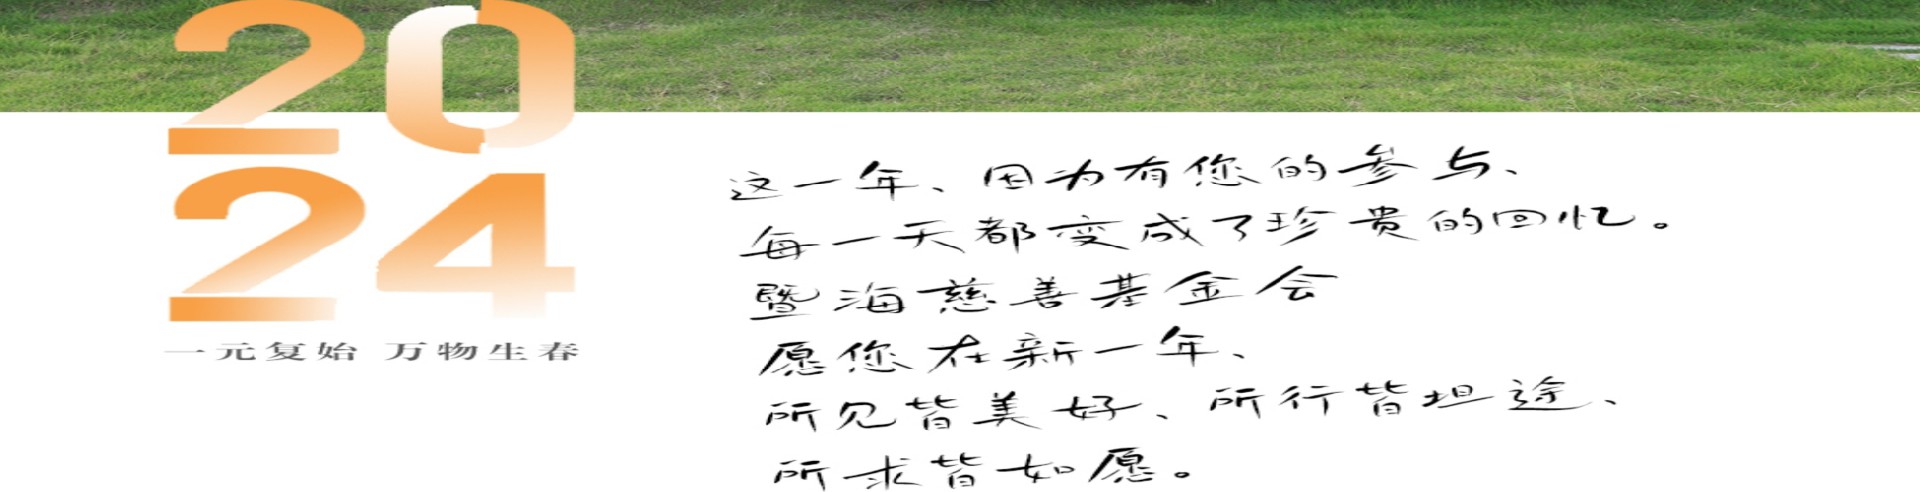 20
24
一元复始 万物生春
这一年、因为有您的参与、
每一天都变成了珍贵的回忆。
暨海慈善基金会
愿您在新一年、
所见皆美好、所行皆坦途、
所求皆如愿。